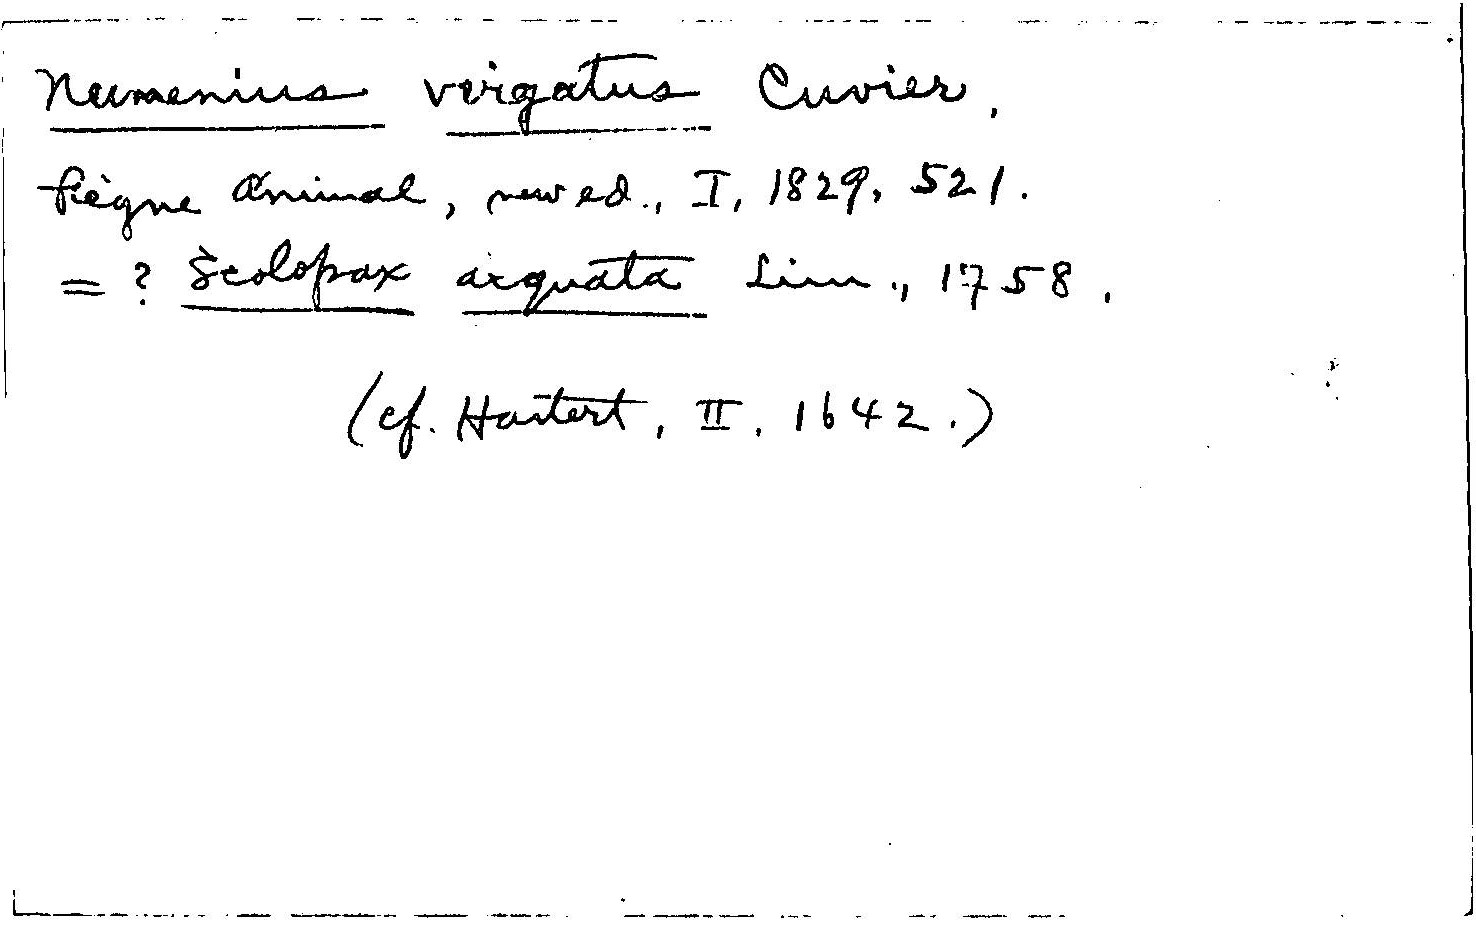 Numenius virgatus Cuvier,
Règne Animal, new ed., I, 1829, 521.
= ? Scolopax arquata Linn., 1758.
(cf. Hartert, II, 1642.)